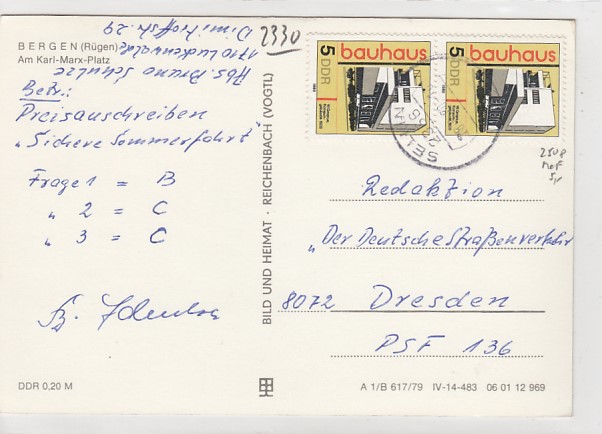 BERGEN (Rügen)
Am Karl-Marx-Platz
Abs. Bruno Schulze
1710 Luckenwalde
Dimitroffstr. 29
2330
Betr.:
Preisausschreiben
"Sichere Sommerfahrt"
Frage 1 = B
" 2 = C
" 3 = C
BILD UND HEIMAT · REICHENBACH (VOGTL)
5 bauhaus
DDR
5 bauhaus
DDR
SELLIN
Redaktion
"Der Deutsche Straßenverkehr
8072 Dresden
PSF 136
DDR 0,20 M
A 1/B 617/79 IV-14-483 06 01 12 969